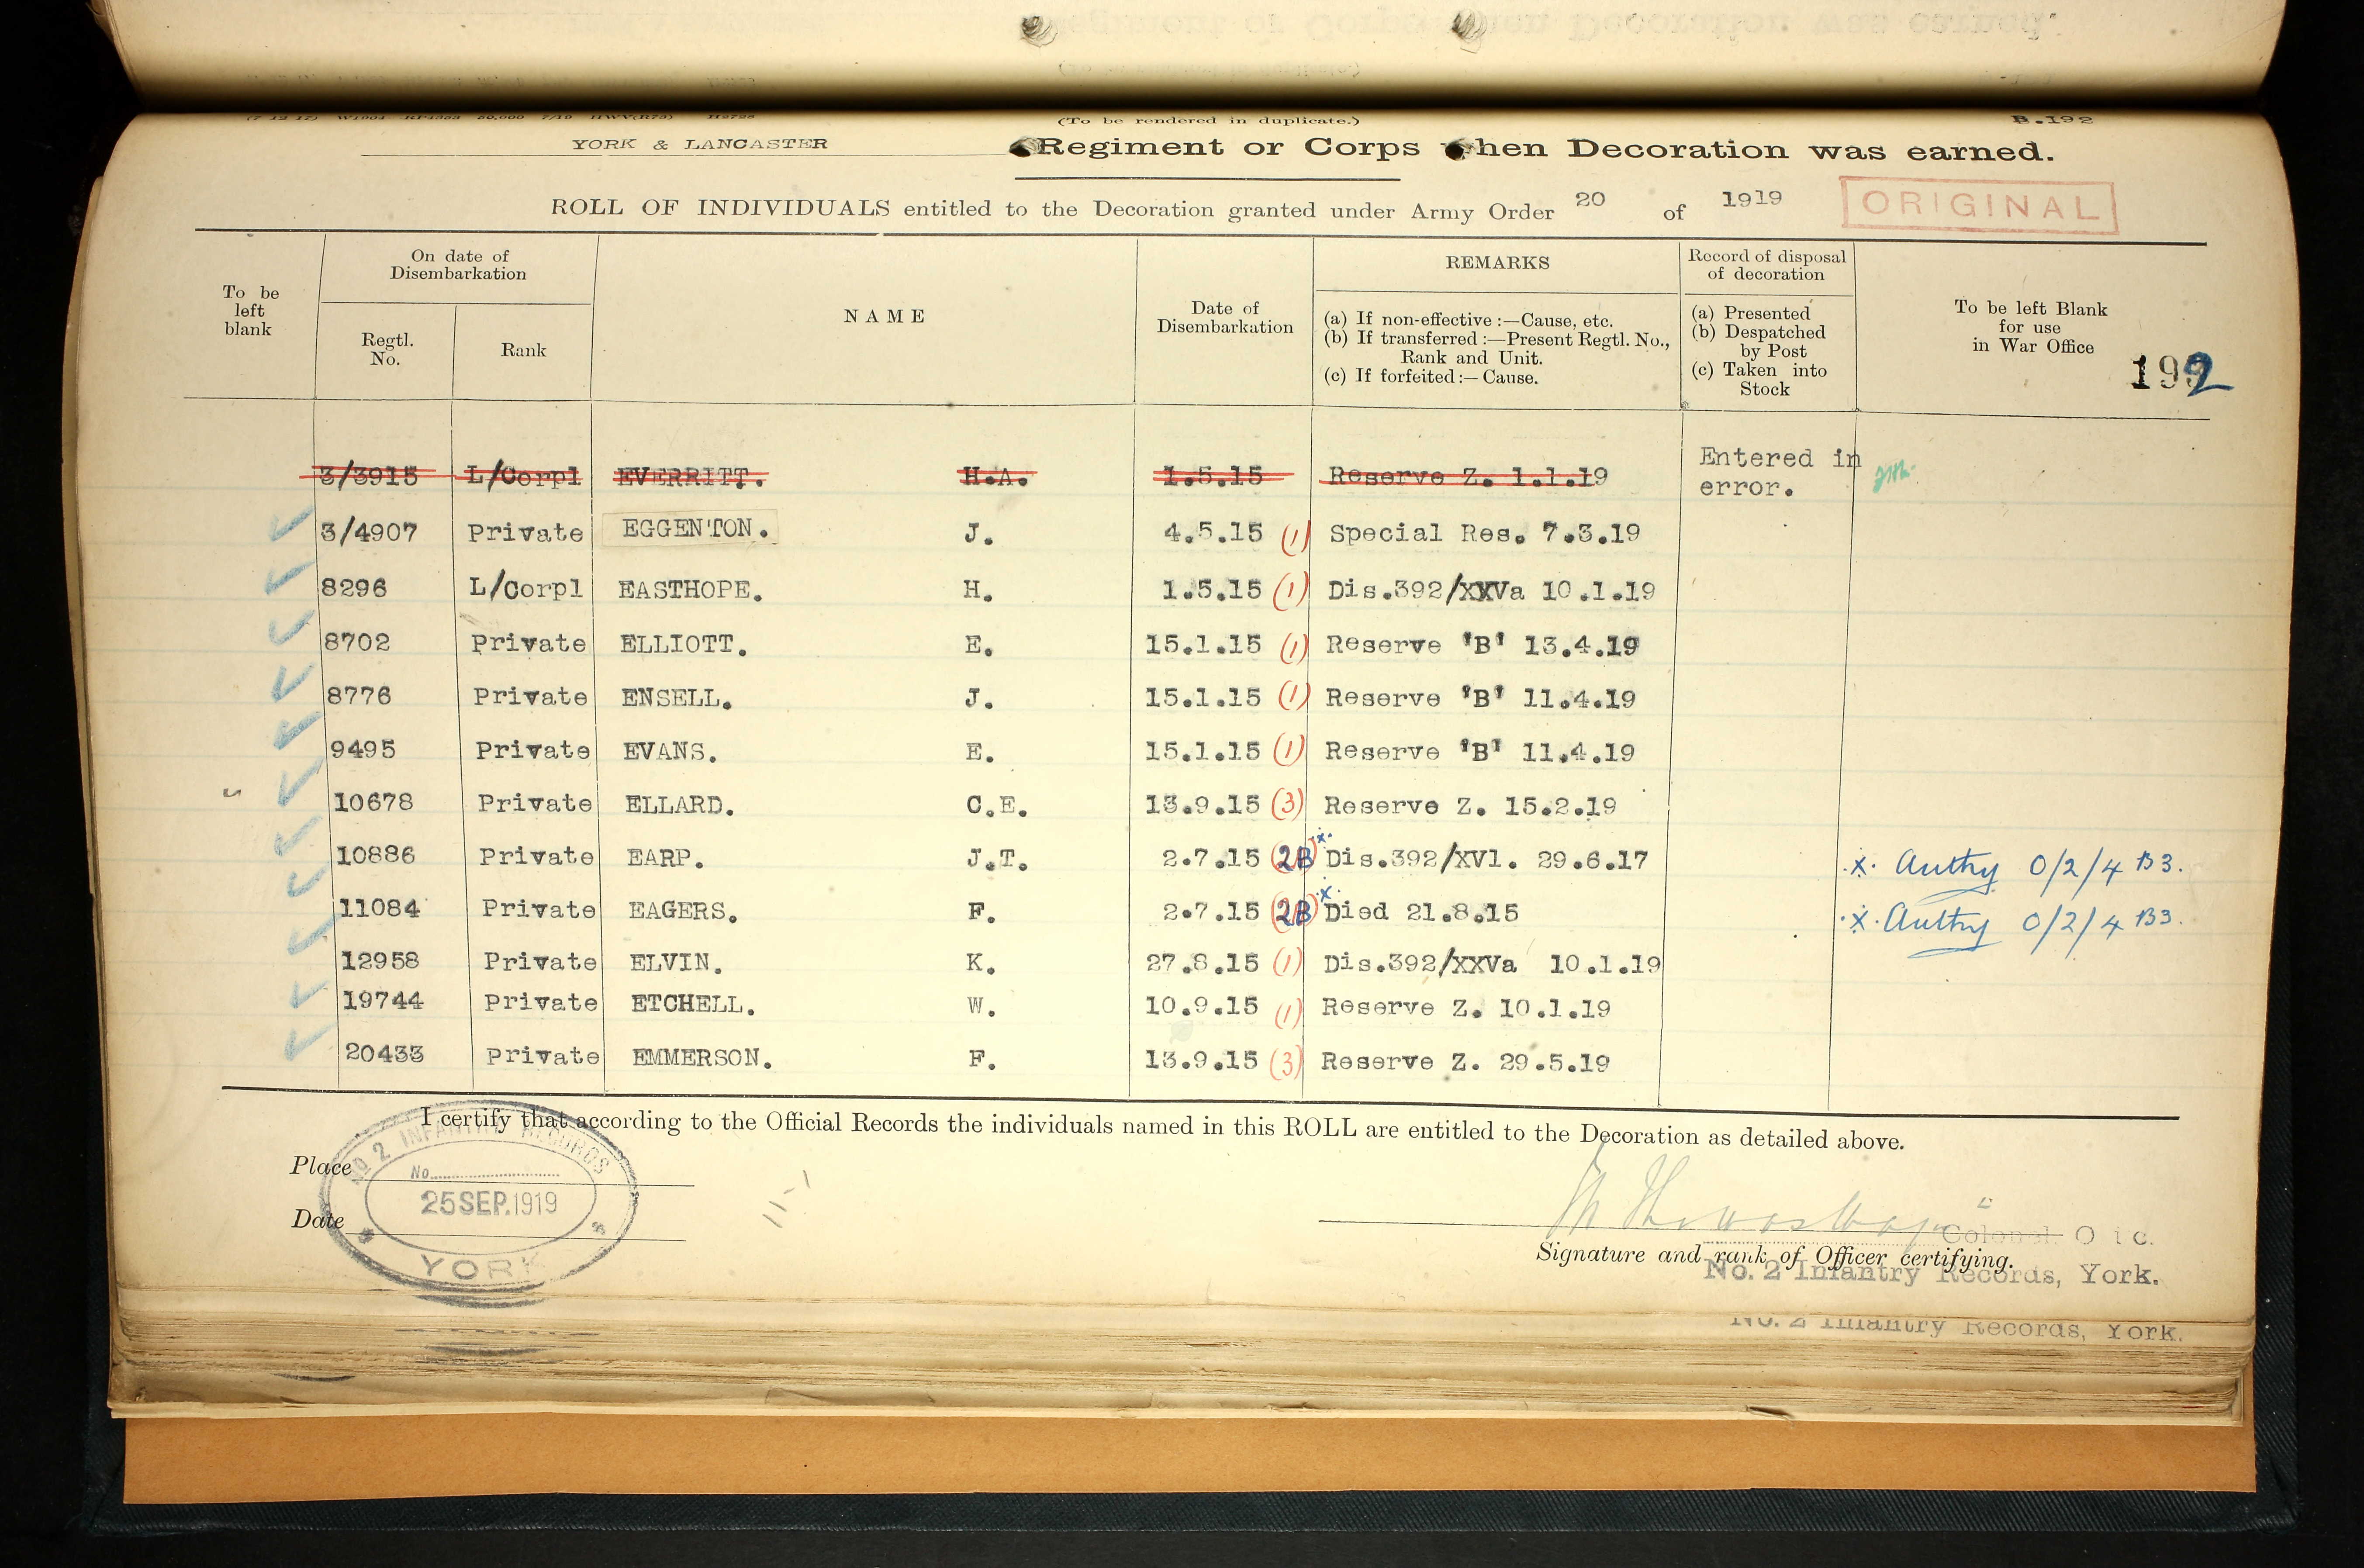 (To be rendered in duplicate.) B.192
YORK & LANCASTER Regiment or Corps when Decoration was earned.
ROLL OF INDIVIDUALS entitled to the Decoration granted under Army Order 20 of 1919
ORIGINAL
To be left blank
On date of Disembarkation
Regtl. No.
Rank
NAME
Date of Disembarkation
REMARKS
(a) If non-effective :—Cause, etc.
(b) If transferred :—Present Regtl. No., Rank and Unit.
(c) If forfeited :— Cause.
Record of disposal of decoration
(a) Presented
(b) Despatched by Post
(c) Taken into Stock
To be left Blank for use in War Office
192
3/3915 L/Corpl EVERRITT. H.A. 1.5.15 Reserve Z. 1.1.19 Entered in error.
3/4907 Private EGGENTON. J. 4.5.15 (1) Special Res. 7.3.19
8296 L/Corpl EASTHOPE. H. 1.5.15 (1) Dis.392/XXVa 10.1.19
8702 Private ELLIOTT. E. 15.1.15 (1) Reserve 'B' 13.4.19
8776 Private ENSELL. J. 15.1.15 (1) Reserve 'B' 11.4.19
9495 Private EVANS. E. 15.1.15 (1) Reserve 'B' 11.4.19
10678 Private ELLARD. C.E. 13.9.15 (3) Reserve Z. 15.2.19
10886 Private EARP. J.T. 2.7.15 2B x Dis.392/XVl. 29.6.17 x. Authy 0/2/4 B3.
11084 Private EAGERS. F. 2.7.15 2B x Died 21.8.15 x. Authy 0/2/4 B3.
12958 Private ELVIN. K. 27.8.15 (1) Dis.392/XXVa 10.1.19
19744 Private ETCHELL. W. 10.9.15 (1) Reserve Z. 10.1.19
20433 Private EMMERSON. F. 13.9.15 (3) Reserve Z. 29.5.19
I certify that according to the Official Records the individuals named in this ROLL are entitled to the Decoration as detailed above.
Place
Date
No 2 INFANTRY RECORDS
No.
25 SEP. 1919
YORK
Colonel O i c.
Signature and rank of Officer certifying.
No. 2 Infantry Records, York.
No. 2 Infantry Records, York.